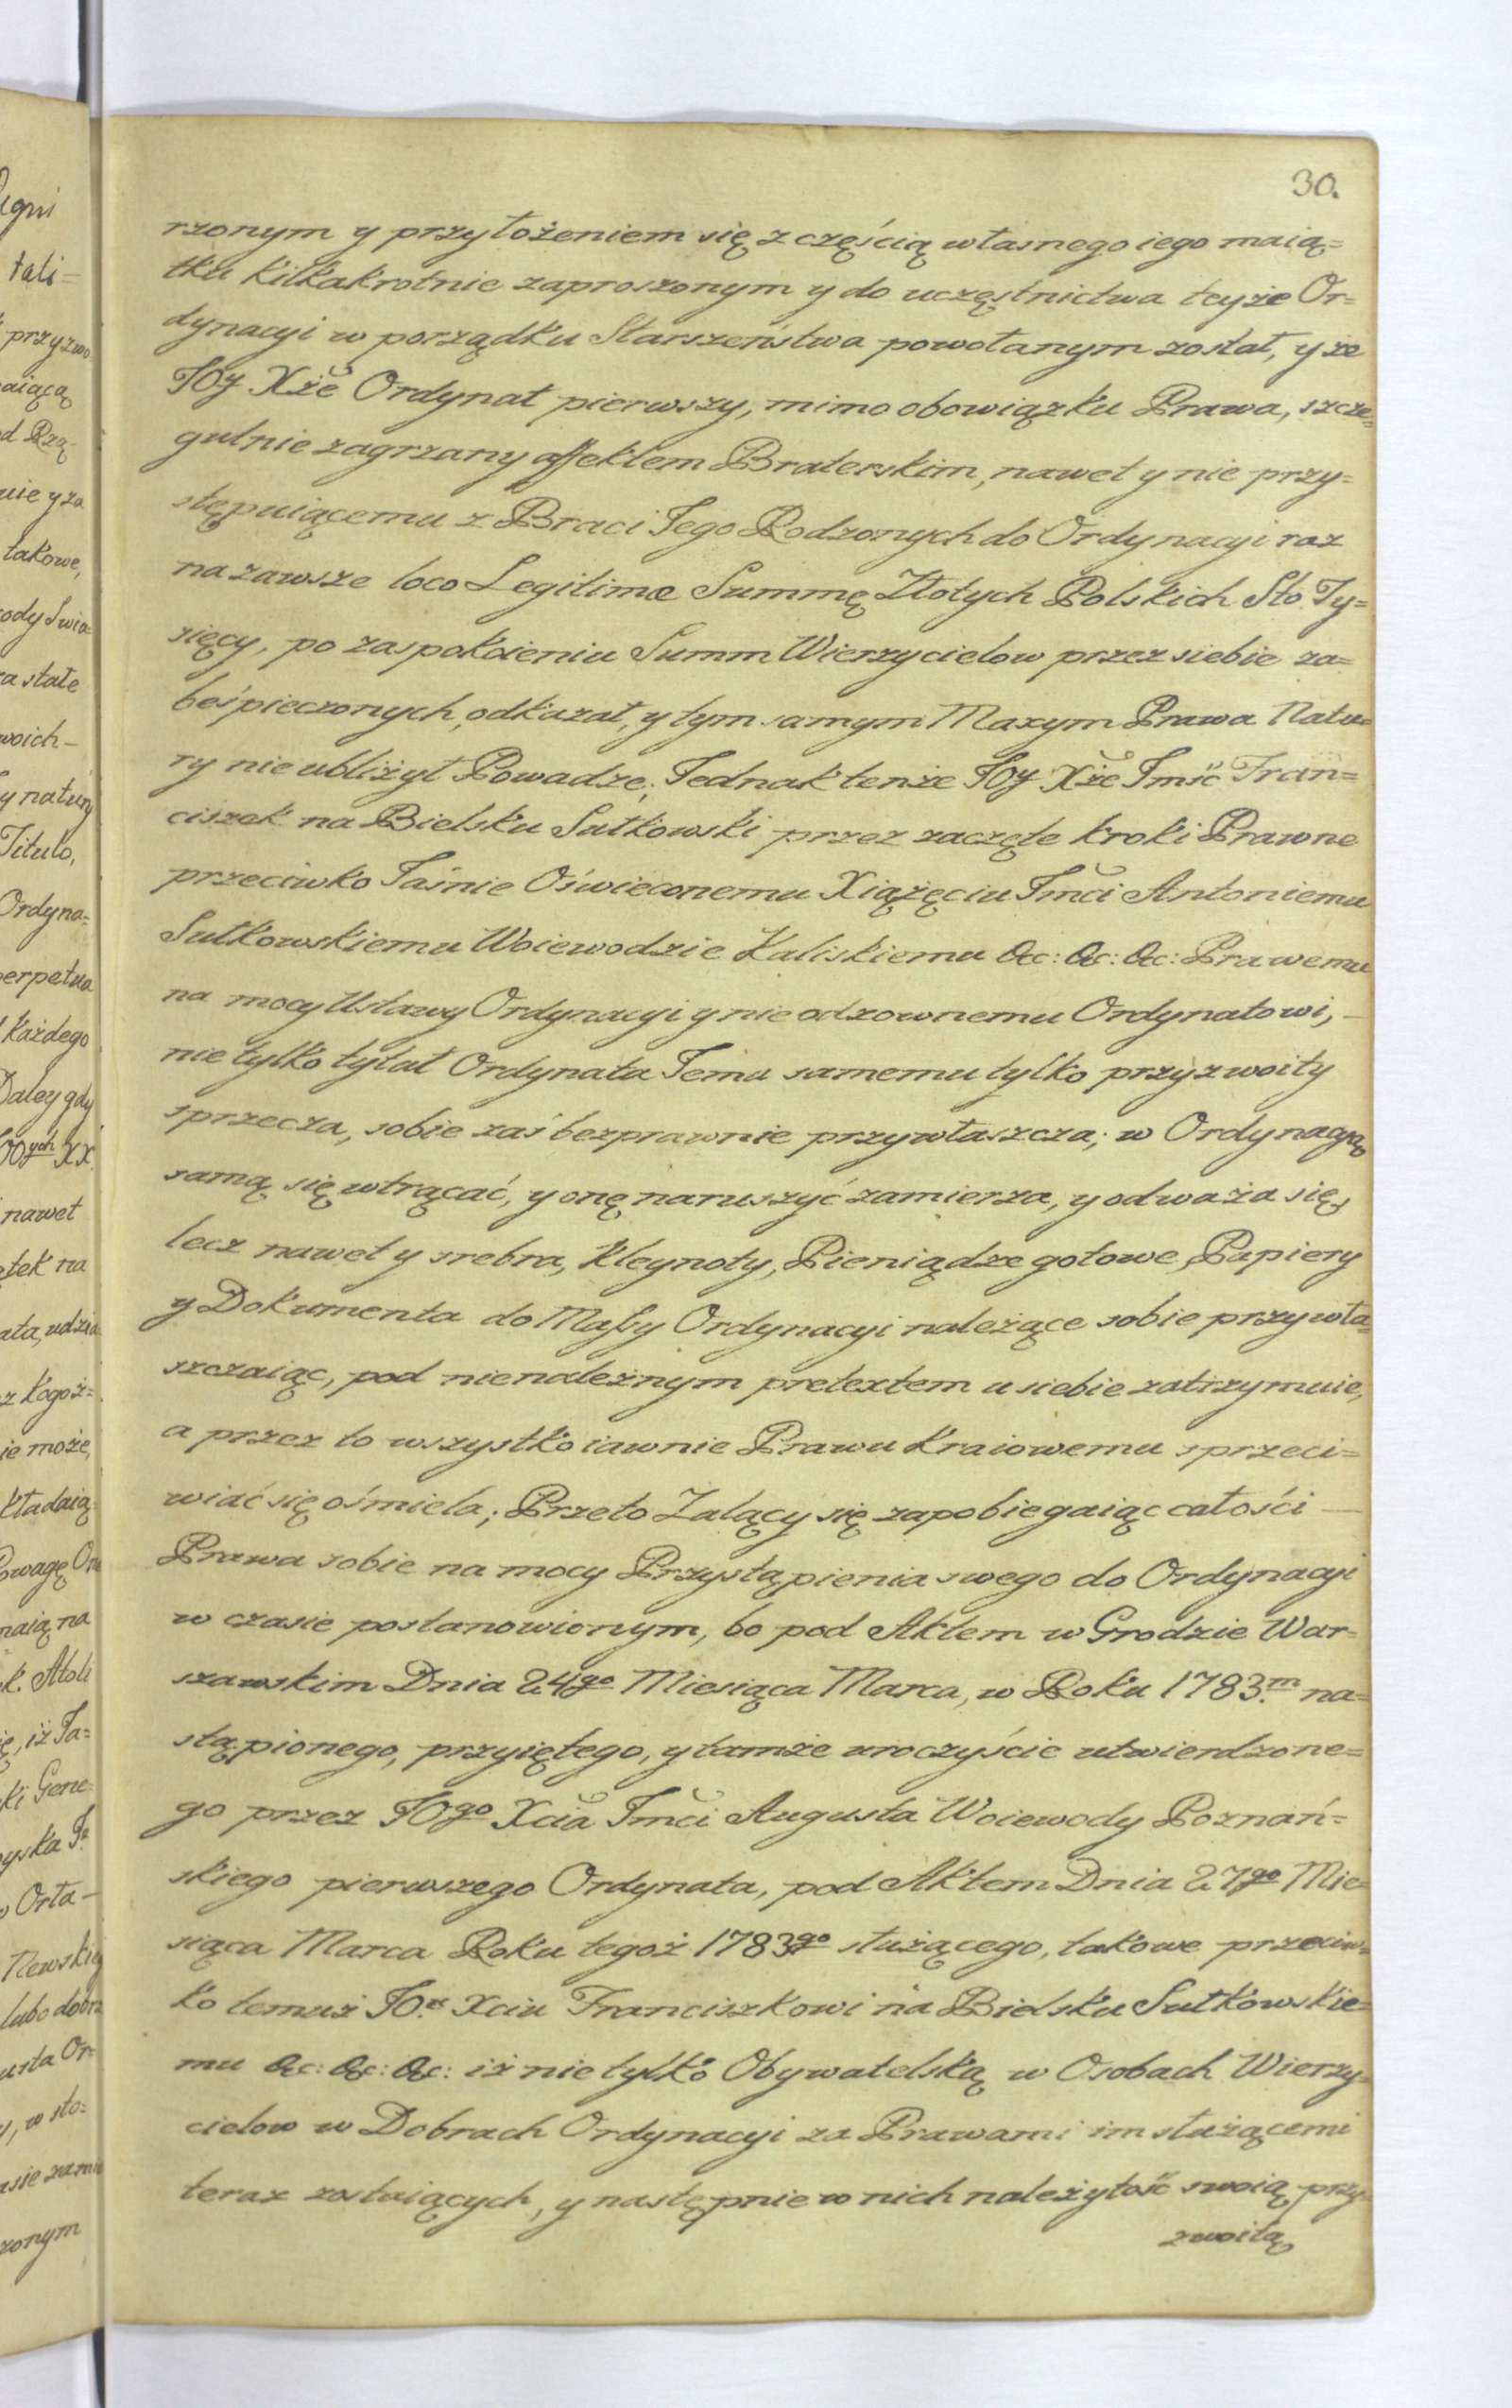 30.
rzonym y przyłożeniem się z częścią własnego iego maią=
tku kilkakrotnie zaproszonym y do uczęstnictwa teyże Or=
dynacyi w porządku Starszeństwa powołanym został, y że
JOy Xże Ordynat pierwszy, mimo obowiązku Prawa, szcze=
gulnie zagrzany affektem Braterskim, nawet y nie przy=
stępuiącemu z Braci Jego Rodzonych do Ordynacyi raz
na zawsze loco Legitimæ Summę Złotych Polskich Sto Ty=
sięcy, po zaspokoieniu Summ Wierzycielow przez siebie za=
beśpieczonych, odkazał, y tym samym Maxym Prawa Natu=
ry nie ubliżył Powadze; Jednak tenże JOy Xże Jmść Fran=
ciszek na Bielsku Sułkowski przez zaczęte kroki Prawne
przeciwko Jaśnie Oświeconemu Xiążęciu Jmći Antoniemu
Sułkowskiemu Woiewodzie Kaliskiemu &c: &c: &c: Prawemu
na mocy Ustawy Ordynacyi y nieodzownemu Ordynatowi, —
nie tylko tytuł Ordynata Jemu samemu tylko przyzwoity
sprzecza, sobie zaś bezprawnie przywłaszcza; w Ordynacyą
samą się wtrącać, y onę naruszyć zamierza, y odważa się,
lecz nawet y srebra, kleynoty, Pieniądze gotowe, Papiery
y Dokumenta do Massy Ordynacyi należące sobie przywła=
szczaiąc, pod nienależnym pretextem u siebie zatrzymuie,
a przez to wszystko iawnie Prawu Kraiowemu sprzeci=
wiać się ośmiela; Przeto Żalący się zapobiegaiąc całości —
Prawa sobie na mocy Przystąpienia swego do Ordynacyi
w czasie postanowionym, bo pod Aktem w Grodzie War=
szawskim Dnia 24go Miesiąca Marca, w Roku 1783.m na=
stąpionego, przyiętego, y tamże uroczyście utwierdzone=
go przez JOgo Xcia Jmći Augusta Woiewody Poznań=
skiego pierwszego Ordynata, pod Aktem Dnia 27go Mie=
siąca Marca Roku tegoż 1783go służącego, takowe przeciw=
ko temuż JO. Xciu Franciszkowi na Bielsku Sułkowskie=
mu &c: &c: &c: iż nie tylko Obywatelską w Osobach Wierzy=
cielow w Dobrach Ordynacyi za Prawami im służącemi
teraz zostaiących, y następnie w nich należytość swoią przy=
zwoitą